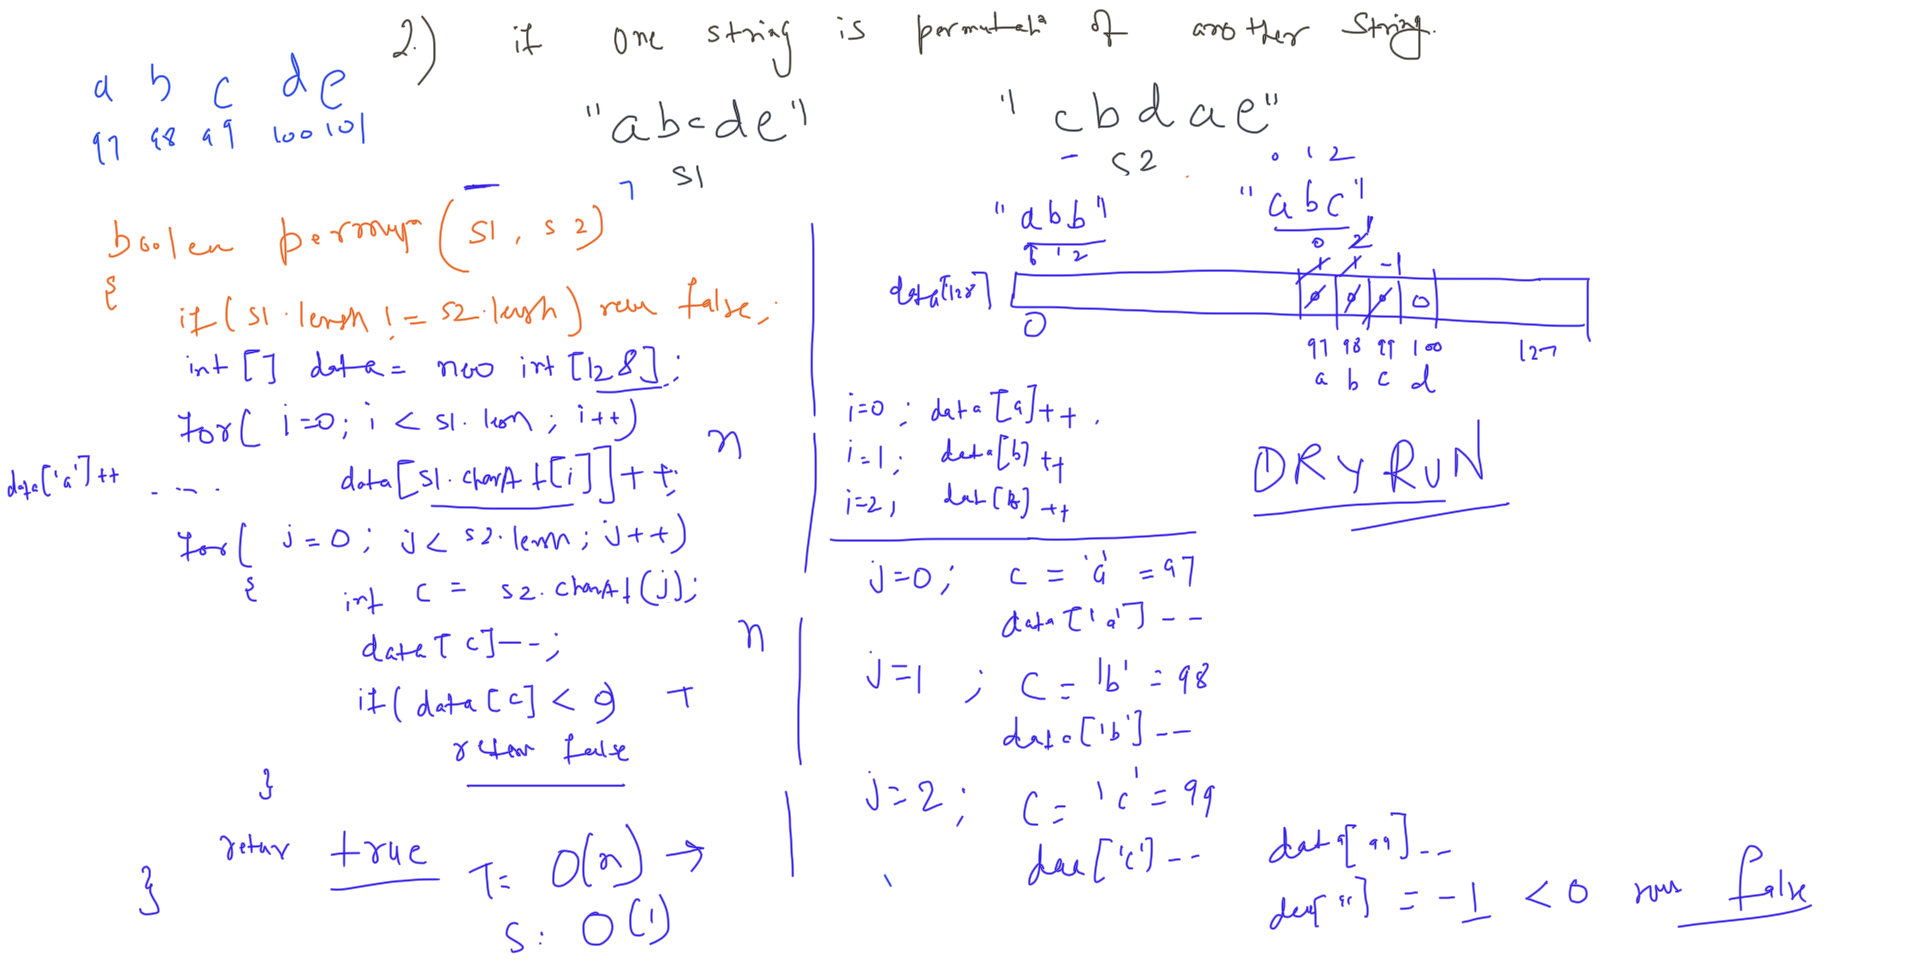 2.) if one string is permutatn of another string.
a b c d e
97 98 99 100 101
"abcde" "cbdae"
S1 S2
boolen permup(S1, S2)
{
if(S1.length != S2.length) return false;
int [] data = new int [128];
for( i=0; i < S1.len; i++)
data['a']++
data[S1.charAt[i]]++;
n
for( j=0; j< S2.lenn; j++)
{
int c = S2.charAt(j);
data[c]--;
n
if( data[c] < 0) T
return false
}
return true
}
T= O(n) →
S: O(1)
"abb" "abc"
0 1 2
0 1 2
0 2 1
1 1 -1
data[128]
0 0 0 0
0
97 98 99 100 127
a b c d
i=0; data[a]++.
i=1; data[b]++
i=2; dat[b]++
DRY RUN
j=0; c = 'a' = 97
data['a']--
j=1; c = 'b' = 98
data['b']--
j=2; c = 'c' = 99
daa['c']--
data[99]--
= -1 < 0 false